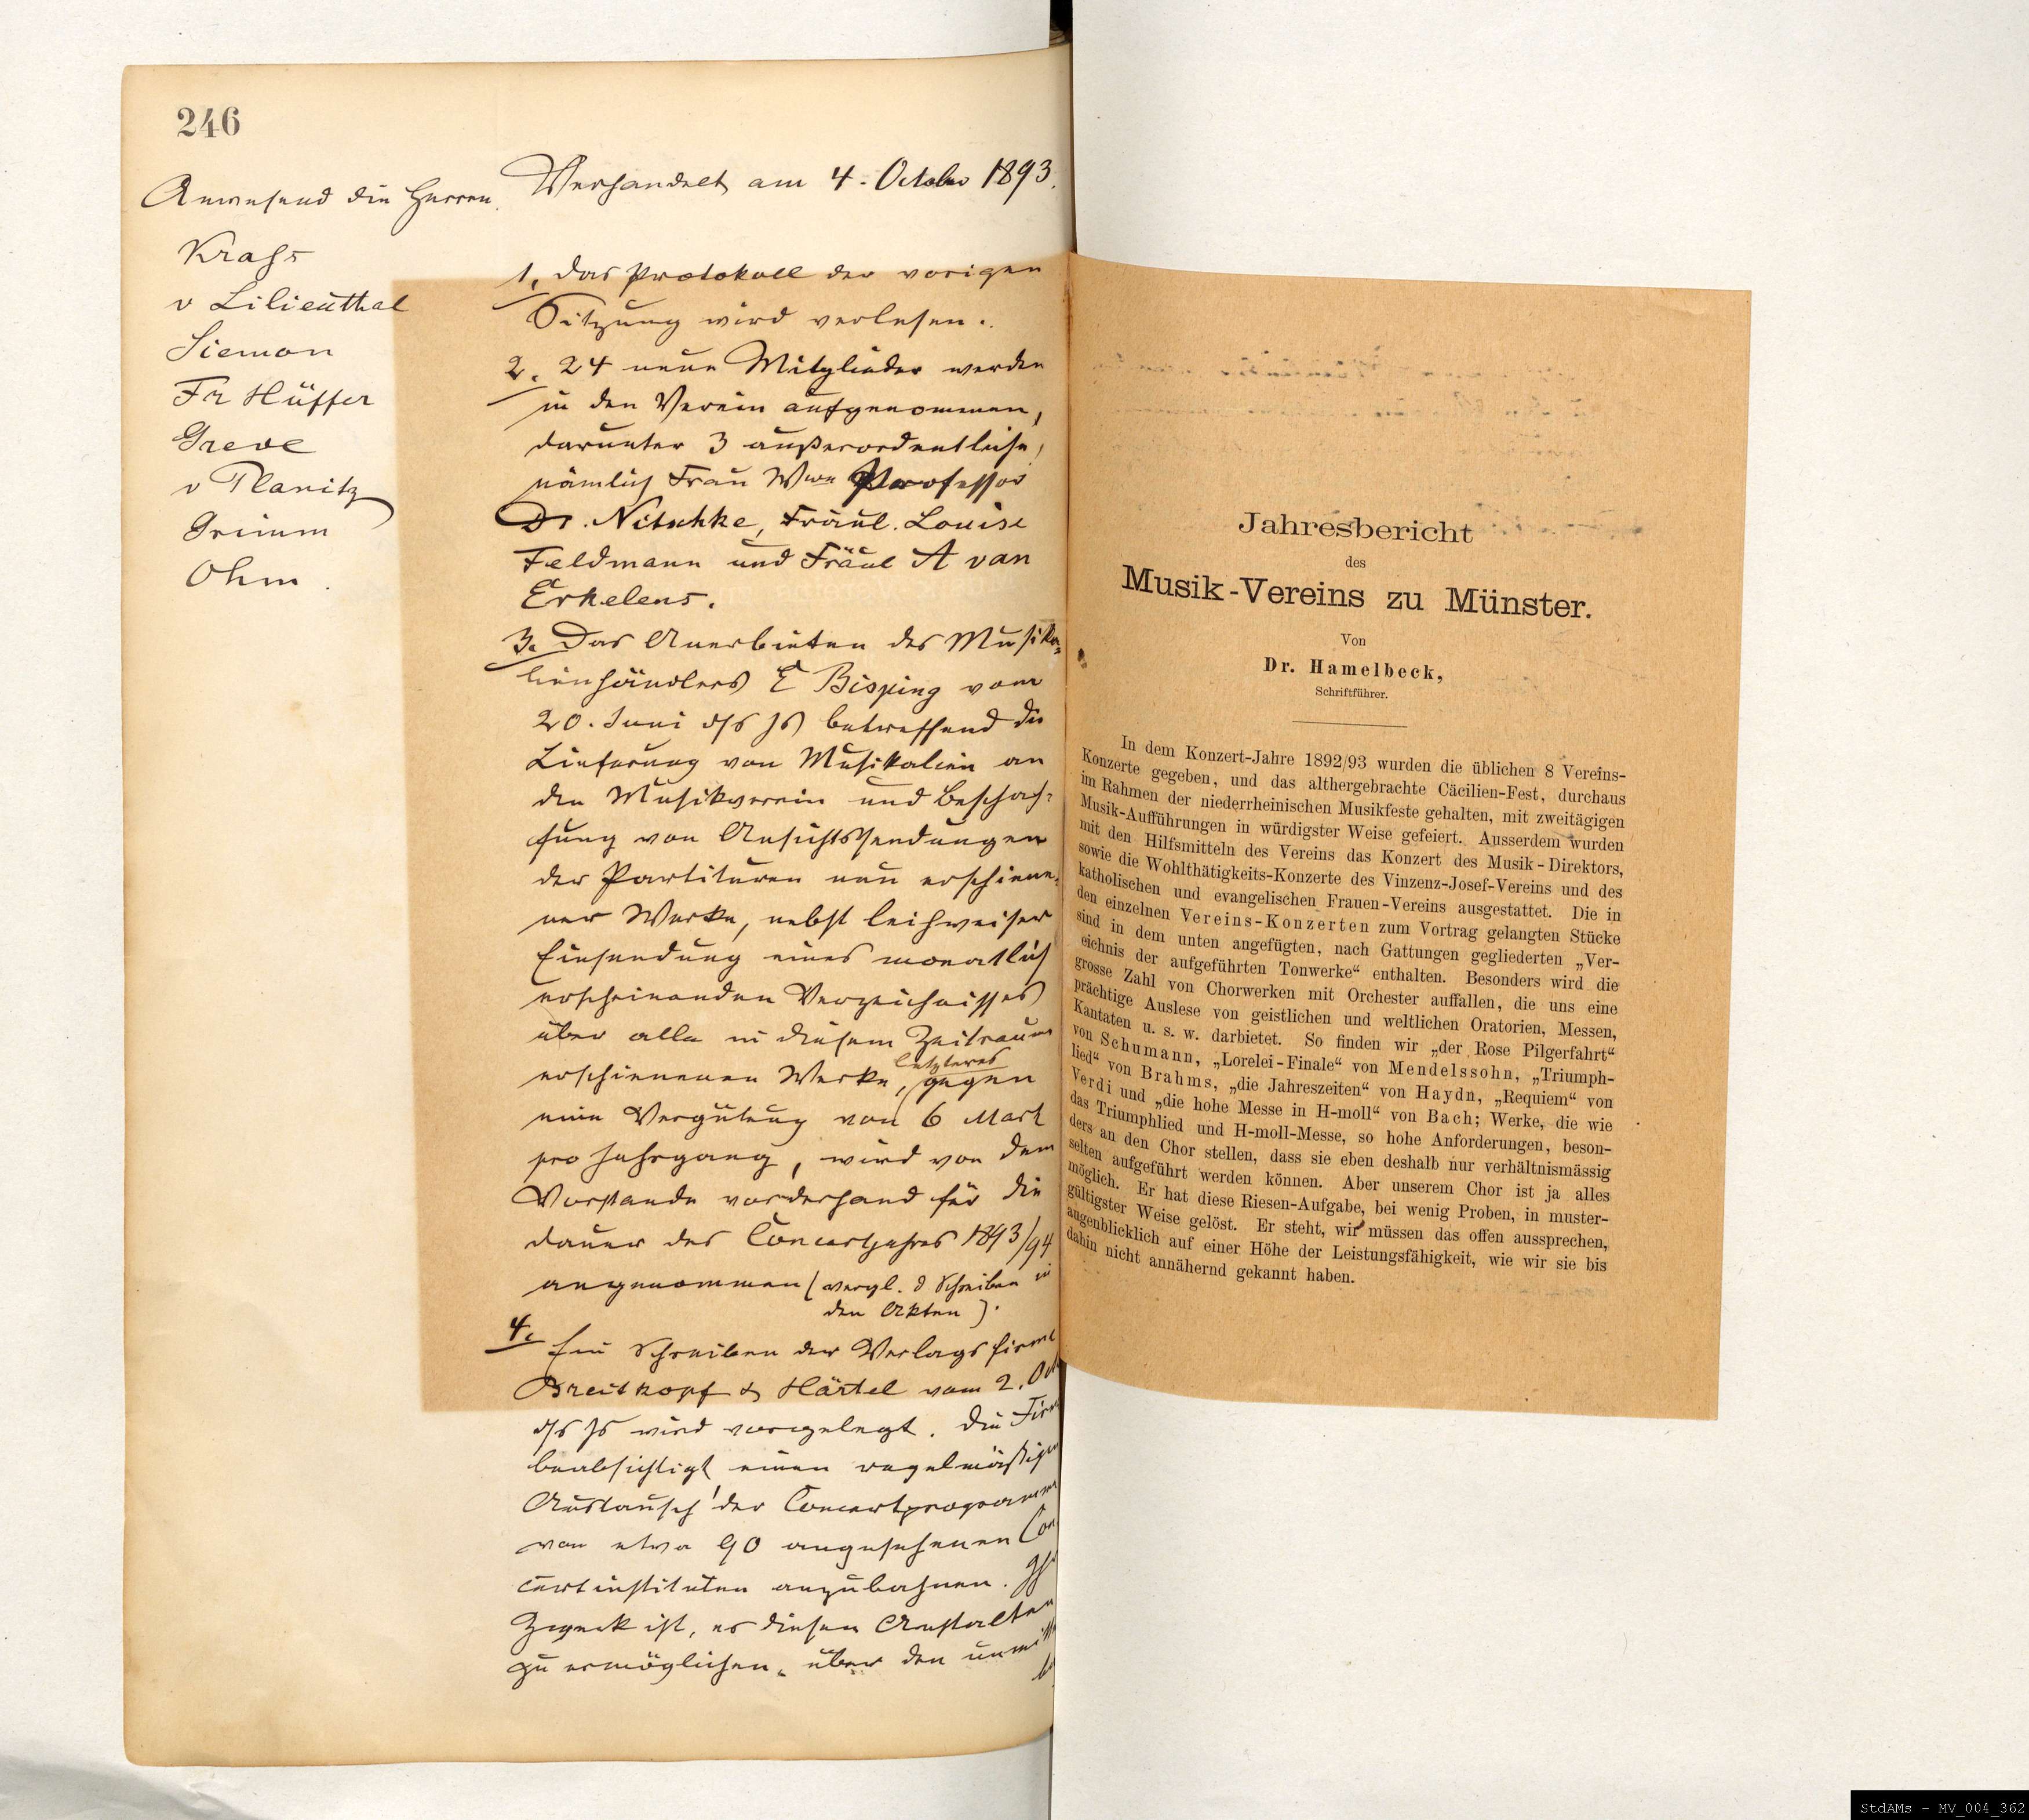 246
Anwesend die Herren
Krass
v Lilienthal
Siemon
Fr Hüffer
Greve
v Planitz
Grimm
Ohm.
Verhandelt am 4. October 1893.
1, Das Protokoll der vorigen
Sitzung wird verlesen.
2. 24 neue Mitglieder werden
in den Verein aufgenommen,
darunter 3 außerordentliche,
nämlich Frau Wwe Professor
Dr. Nitschke, Fräul. Louise
Feldmann und Fräul A van
Erkelens.
3. Das Anerbieten des Musika-
lienhändlers E Bisping vom
20. Juni d/s Js betreffend die
Lieferung von Musikalien an
den Musikverein und Beschaf-
fung von Ansichtssendungen
der Partituren neu erschiene-
ner Werke, nebst leihweiser
Einsendung eines monatlich
erscheinenden Verzeichnisses
über alle in diesem Zeitraum
erschienenen Werke, letzteres gegen
eine Vergütung von 6 Mark
pro Jahrgang, wird von dem
Vorstande vorderhand für die
Dauer des Concertjahres 1893/94
angenommen (vergl. d Schreiben in
den Akten).
4. Ein Schreiben der Verlagsfirma
Breitkopf & Härtel vom 2. Oct
d/s Js wird vorgelegt. Die Firm
beabsichtigt einen regelmäßigen
Austausch der Concertprogramme
von etwa 90 angesehenen Con
certinstituten anzubahnen. Ihr
Zweck ist, es diesen Anstalten
zu ermöglichen, über den unmitt
Jahresbericht
des
Musik-Vereins zu Münster.
Von
Dr. Hamelbeck,
Schriftführer.
In dem Konzert-Jahre 1892/93 wurden die üblichen 8 Vereins-
Konzerte gegeben, und das althergebrachte Cäcilien-Fest, durchaus
im Rahmen der niederrheinischen Musikfeste gehalten, mit zweitägigen
Musik-Aufführungen in würdigster Weise gefeiert. Ausserdem wurden
mit den Hilfsmitteln des Vereins das Konzert des Musik-Direktors,
sowie die Wohlthätigkeits-Konzerte des Vinzenz-Josef-Vereins und des
katholischen und evangelischen Frauen-Vereins ausgestattet. Die in
den einzelnen Vereins-Konzerten zum Vortrag gelangten Stücke
sind in dem unten angefügten, nach Gattungen gegliederten „Ver-
eichnis der aufgeführten Tonwerke“ enthalten. Besonders wird die
grosse Zahl von Chorwerken mit Orchester auffallen, die uns eine
prächtige Auslese von geistlichen und weltlichen Oratorien, Messen,
Kantaten u. s. w. darbietet. So finden wir „der Rose Pilgerfahrt“
von Schumann, „Lorelei-Finale“ von Mendelssohn, „Triumph-
lied“ von Brahms, „die Jahreszeiten“ von Haydn, „Requiem“ von
Verdi und „die hohe Messe in H-moll“ von Bach; Werke, die wie
das Triumphlied und H-moll-Messe, so hohe Anforderungen, beson-
ders an den Chor stellen, dass sie eben deshalb nur verhältnismässig
selten aufgeführt werden können. Aber unserem Chor ist ja alles
möglich. Er hat diese Riesen-Aufgabe, bei wenig Proben, in muster-
gültigster Weise gelöst. Er steht, wir müssen das offen aussprechen,
augenblicklich auf einer Höhe der Leistungsfähigkeit, wie wir sie bis
dahin nicht annähernd gekannt haben.
StdAMs - MV_004_362